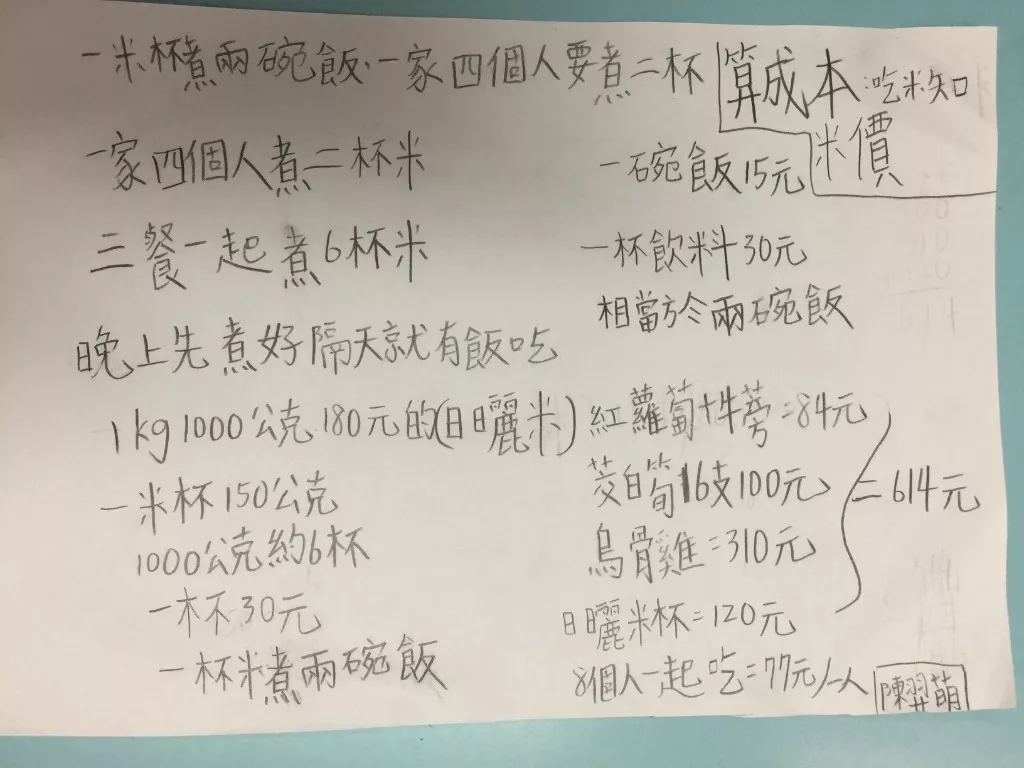 一米杯煮兩碗飯、一家四個人要煮二杯
算成本:吃米知
米價
一家四個人煮二杯米
三餐一起煮6杯米
晚上先煮好隔天就有飯吃
1kg 1000公克 180元的(日曬米)
一米杯150公克
1000公克約6杯
一杯30元
一杯米煮兩碗飯
一碗飯15元
一杯飲料30元
相當於兩碗飯
紅蘿蔔+牛蒡=84元
茭白筍16支100元
烏骨雞=310元
日曬米杯=120元
=614元
8個人一起吃=77元/一人
陳羿萌